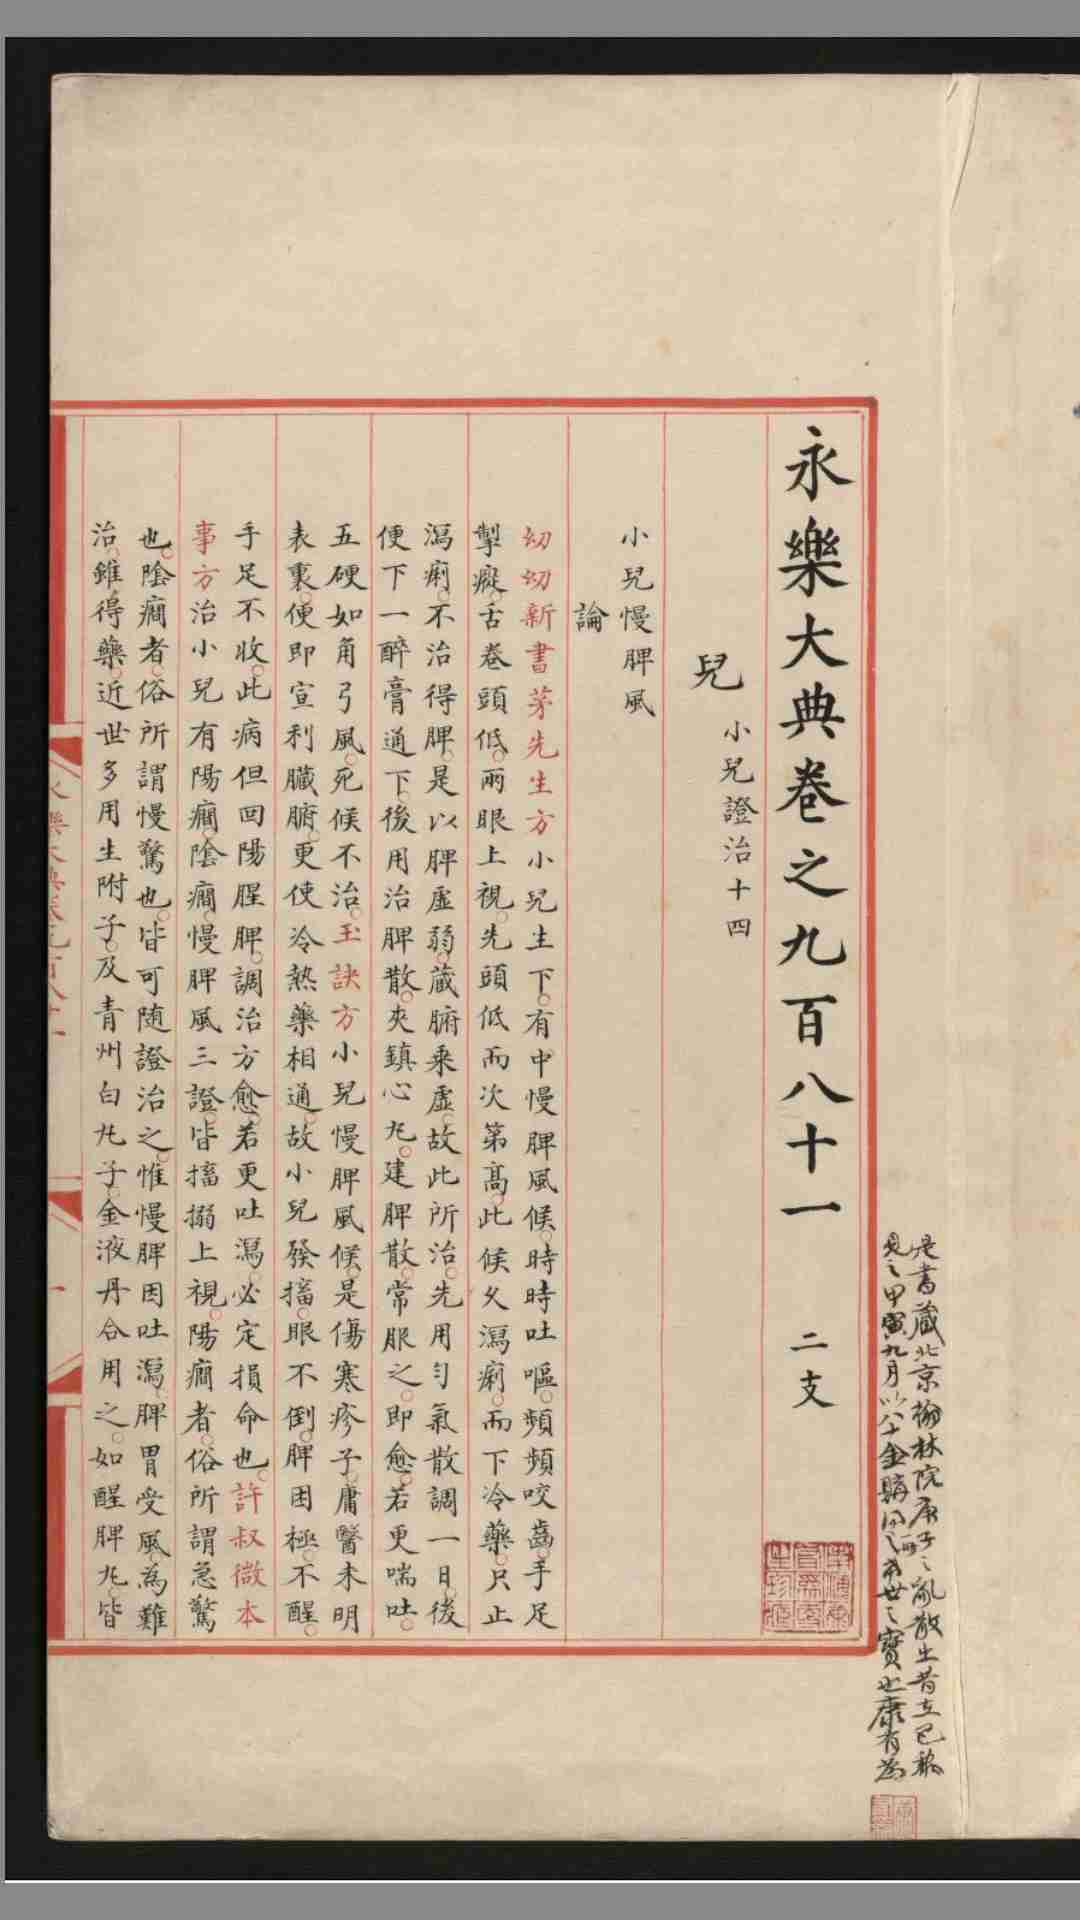 永樂大典卷之九百八十一 二支
兒 小兒證治十四
小兒慢脾風
論
幼幼新書茅先生方小兒生下有中慢脾風候時時吐嘔頻頻咬齒手足
掣瘲舌卷頭低兩眼上視先頭低而次第高此候乆瀉痢而下冷藥只止
瀉痢不治得脾是以脾虛弱蔵腑乘虛故此所治先用勻氣散調一日後
便下一醉膏通下後用治脾散夾鎮心丸建脾散常服之即愈若更喘吐
五硬如角弓風死候不治玉訣方小兒慢脾風候是傷寒疹子庸醫未明
表裏便即宣利臟腑更使冷熱藥相通故小兒發搐眼不倒脾困極不醒
手足不收此病但囬陽腥脾調治方愈若更吐瀉必定損命也許叔微本
事方治小兒有陽癎陰癎慢脾風三證皆搐搦上視陽癎者俗所謂急驚
也陰癎者俗所謂慢驚也皆可随證治之惟慢脾因吐瀉脾胃受風為難
治雖得藥近世多用生附子及青州白丸子金液丹合用之如醒脾丸皆
是書藏北京翰林院庚子之亂散出昔在已
見之甲寅九月以八十金購得之希世之寶也康有為